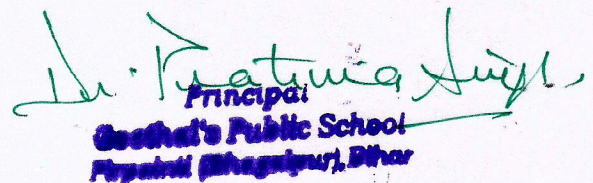 Dr. Pratima Singh.
Principal
Goethal's Public School
Pirpainti (Bhagalpur), Bihar